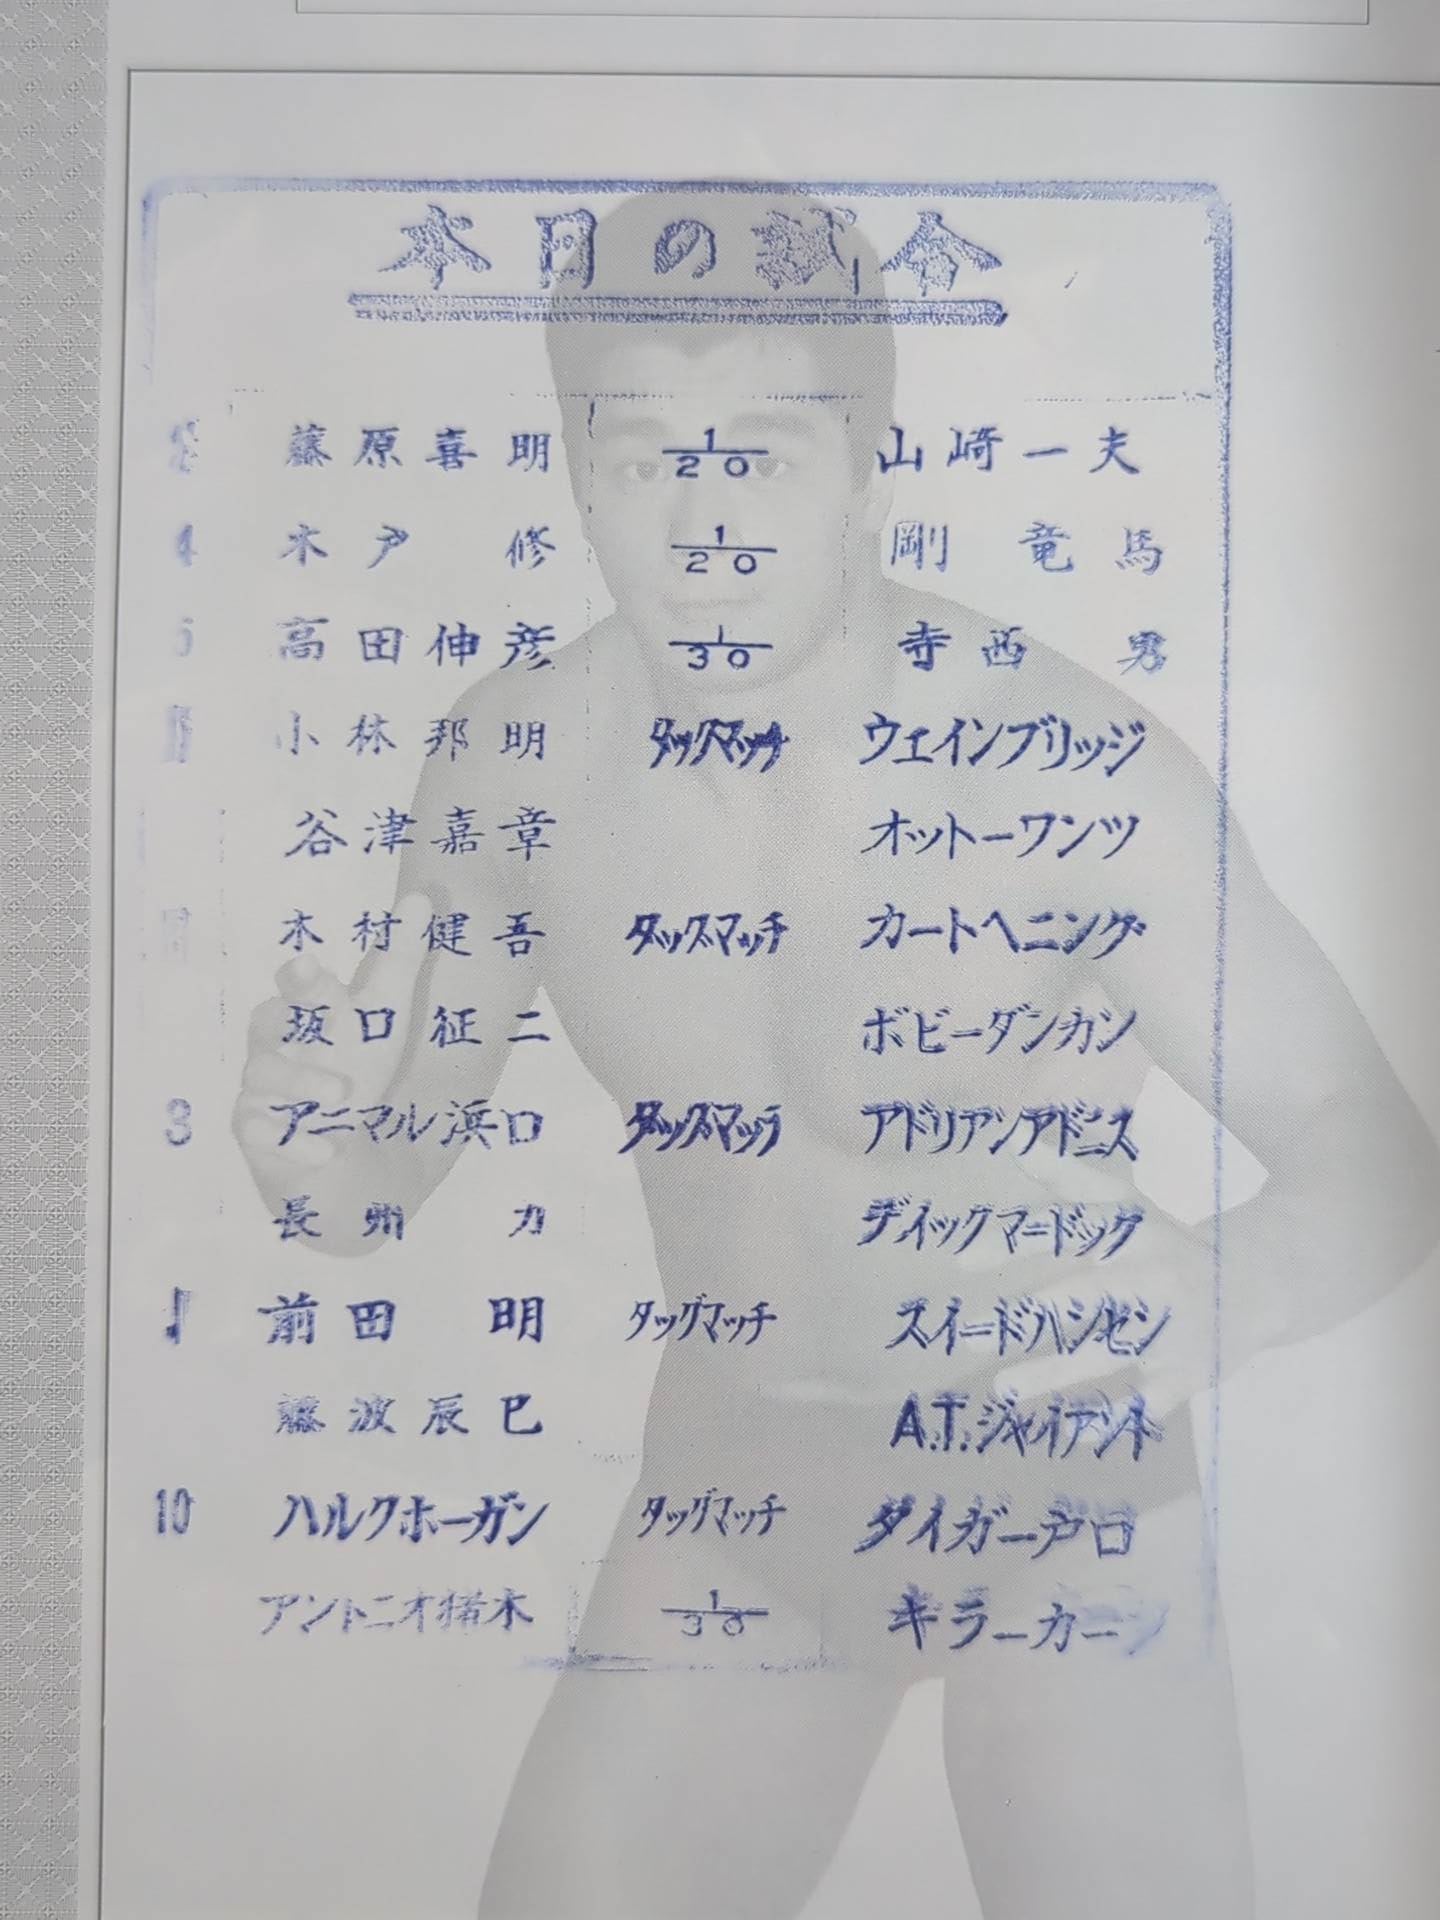 本日の試合
藤原喜明 1/20 山崎一夫
4 木戸修 1/20 剛竜馬
5 高田伸彦 1/30 寺西勇
小林邦明 タッグマッチ ウエインブリッジ
谷津嘉章 オットーワンツ
木村健吾 タッグマッチ カートヘニング
坂口征二 ボビーダンカン
アニマル浜口 タッグマッチ アドリアンアドニス
長州力 ディックマードック
前田明 タッグマッチ スイードハンセン
藤波辰巳 A.T.ジャイアント
10 ハルクホーガン タッグマッチ タイガー戸口
アントニオ猪木 1/30 キラーカーン